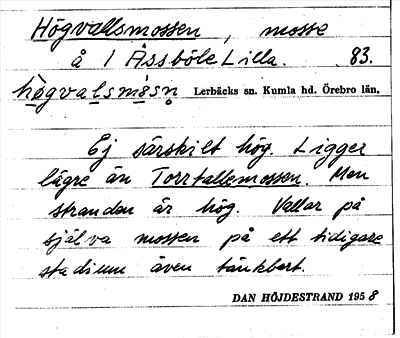 Högvallsmossen, mosse
å 1 Åssböle Lilla. 83.
högvalsmåsn Lerbäcks sn. Kumla hd. Örebro län.
Ej särskilt hög. Ligger
lägre än Torrtallemossen. Men
stranden är hög. Vallar på
själva mossen på ett tidigare
stadium även tänkbart.
DAN HÖJDESTRAND 1958